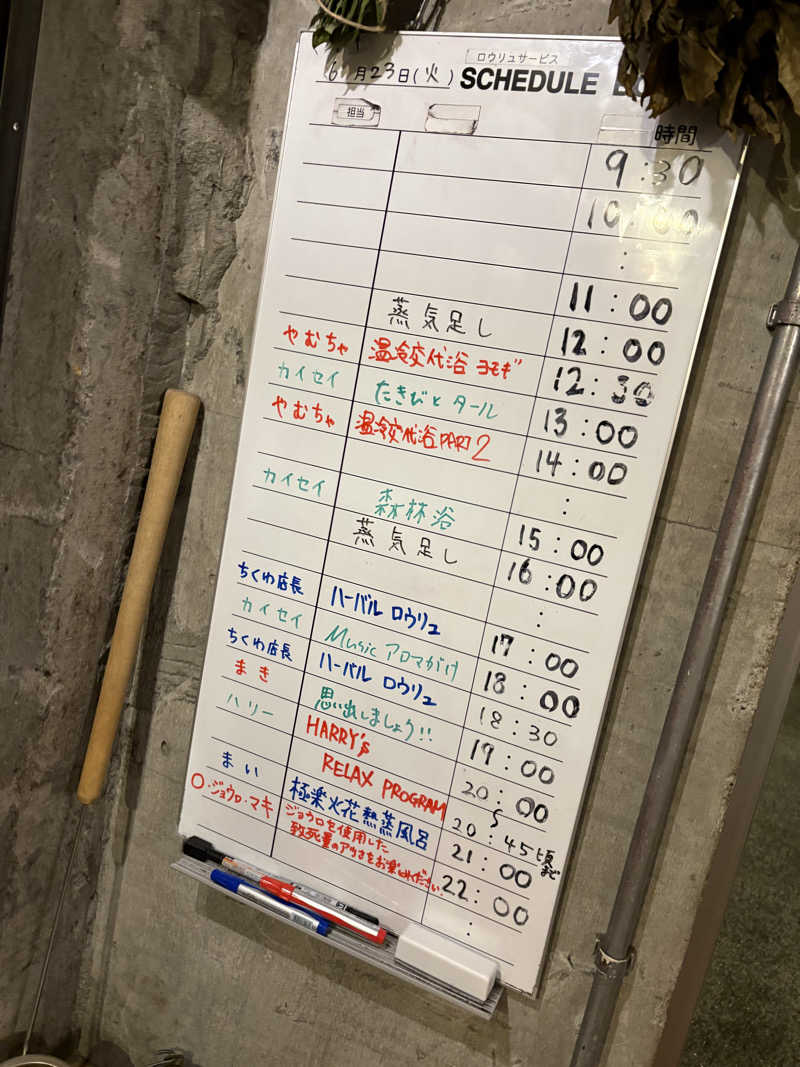 ロウリュサービス
6月23日(火) SCHEDULE
担当 時間
9:30
10:00
:
11:00
蒸気足し 12:00
やむちゃ 温冷交代浴 ヨモギ 12:30
カイセイ たきびと タール 13:00
やむちゃ 温冷交代浴 PART2 14:00
:
カイセイ 森林浴 15:00
蒸気足し 16:00
:
ちくわ店長 ハーバル ロウリュ 17:00
カイセイ Music アロマがけ 18:00
ちくわ店長 ハーバル ロウリュ 18:30
まき 思い出しましょう!! 19:00
ハリー HARRY's 20:00
RELAX PROGRAM 〜 20:45頃まで
まい 極楽火花熱蒸風呂 21:00
O・ジョウロ・マキ ジョウロを使用した 22:00
致死量のアツさをお楽しみください。
: